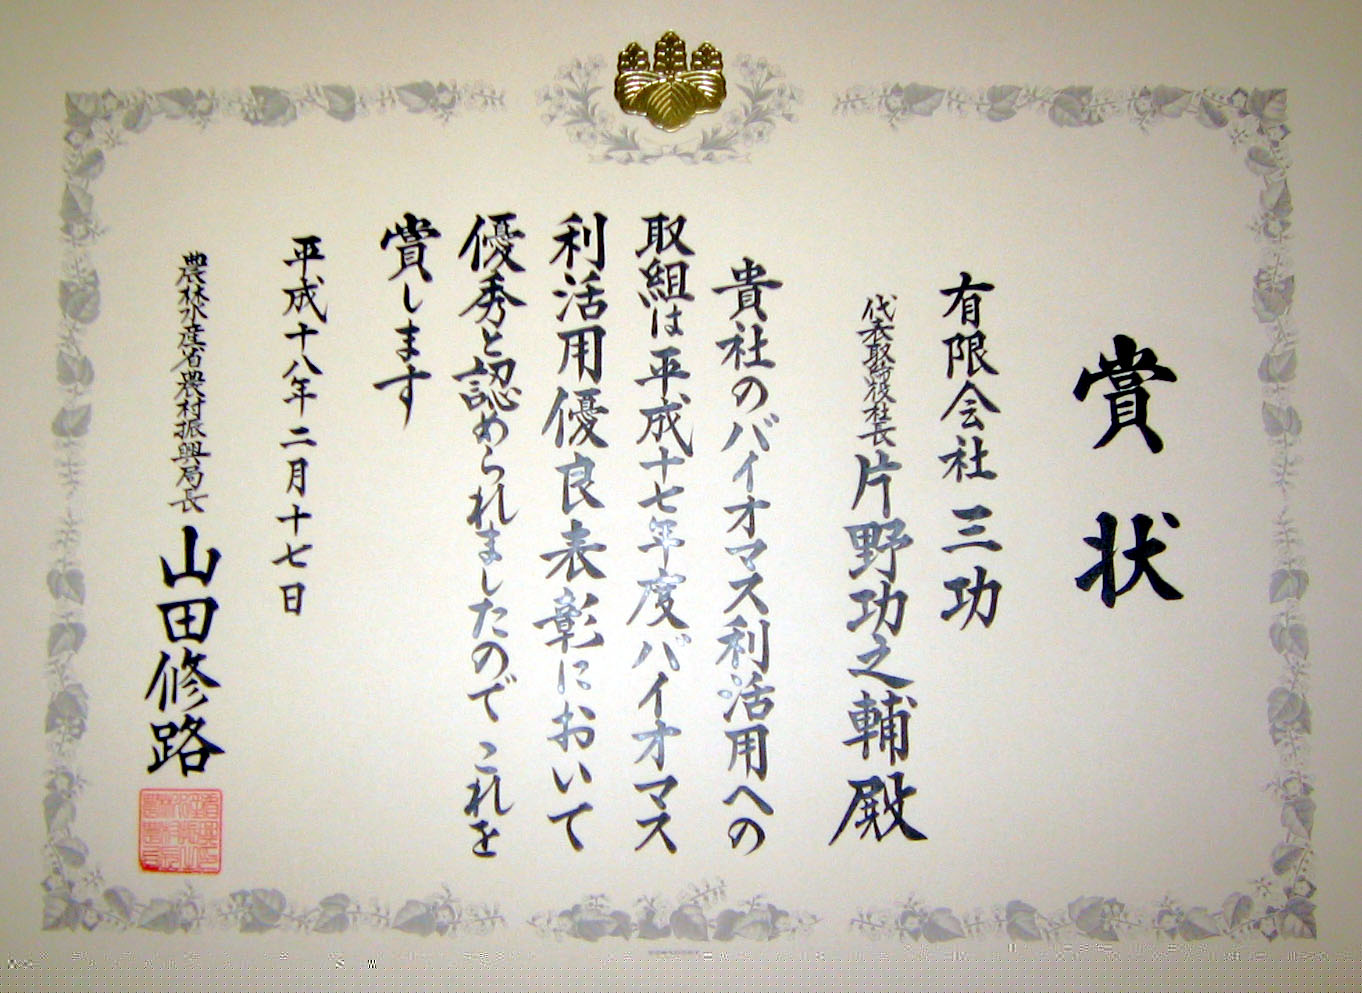 賞状
有限会社 三功
代表取締役社長 片野功之輔殿
貴社のバイオマス利活用への
取組は平成十七年度バイオマス
利活用優良表彰において
優秀と認められましたので これを
賞します
平成十八年二月十七日
農林水産省農村振興局長 山田修路